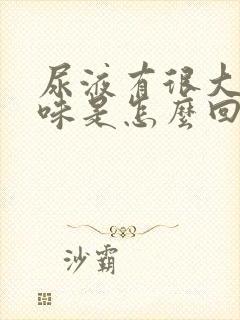 尿液有很大
味是怎麼回
沙霸